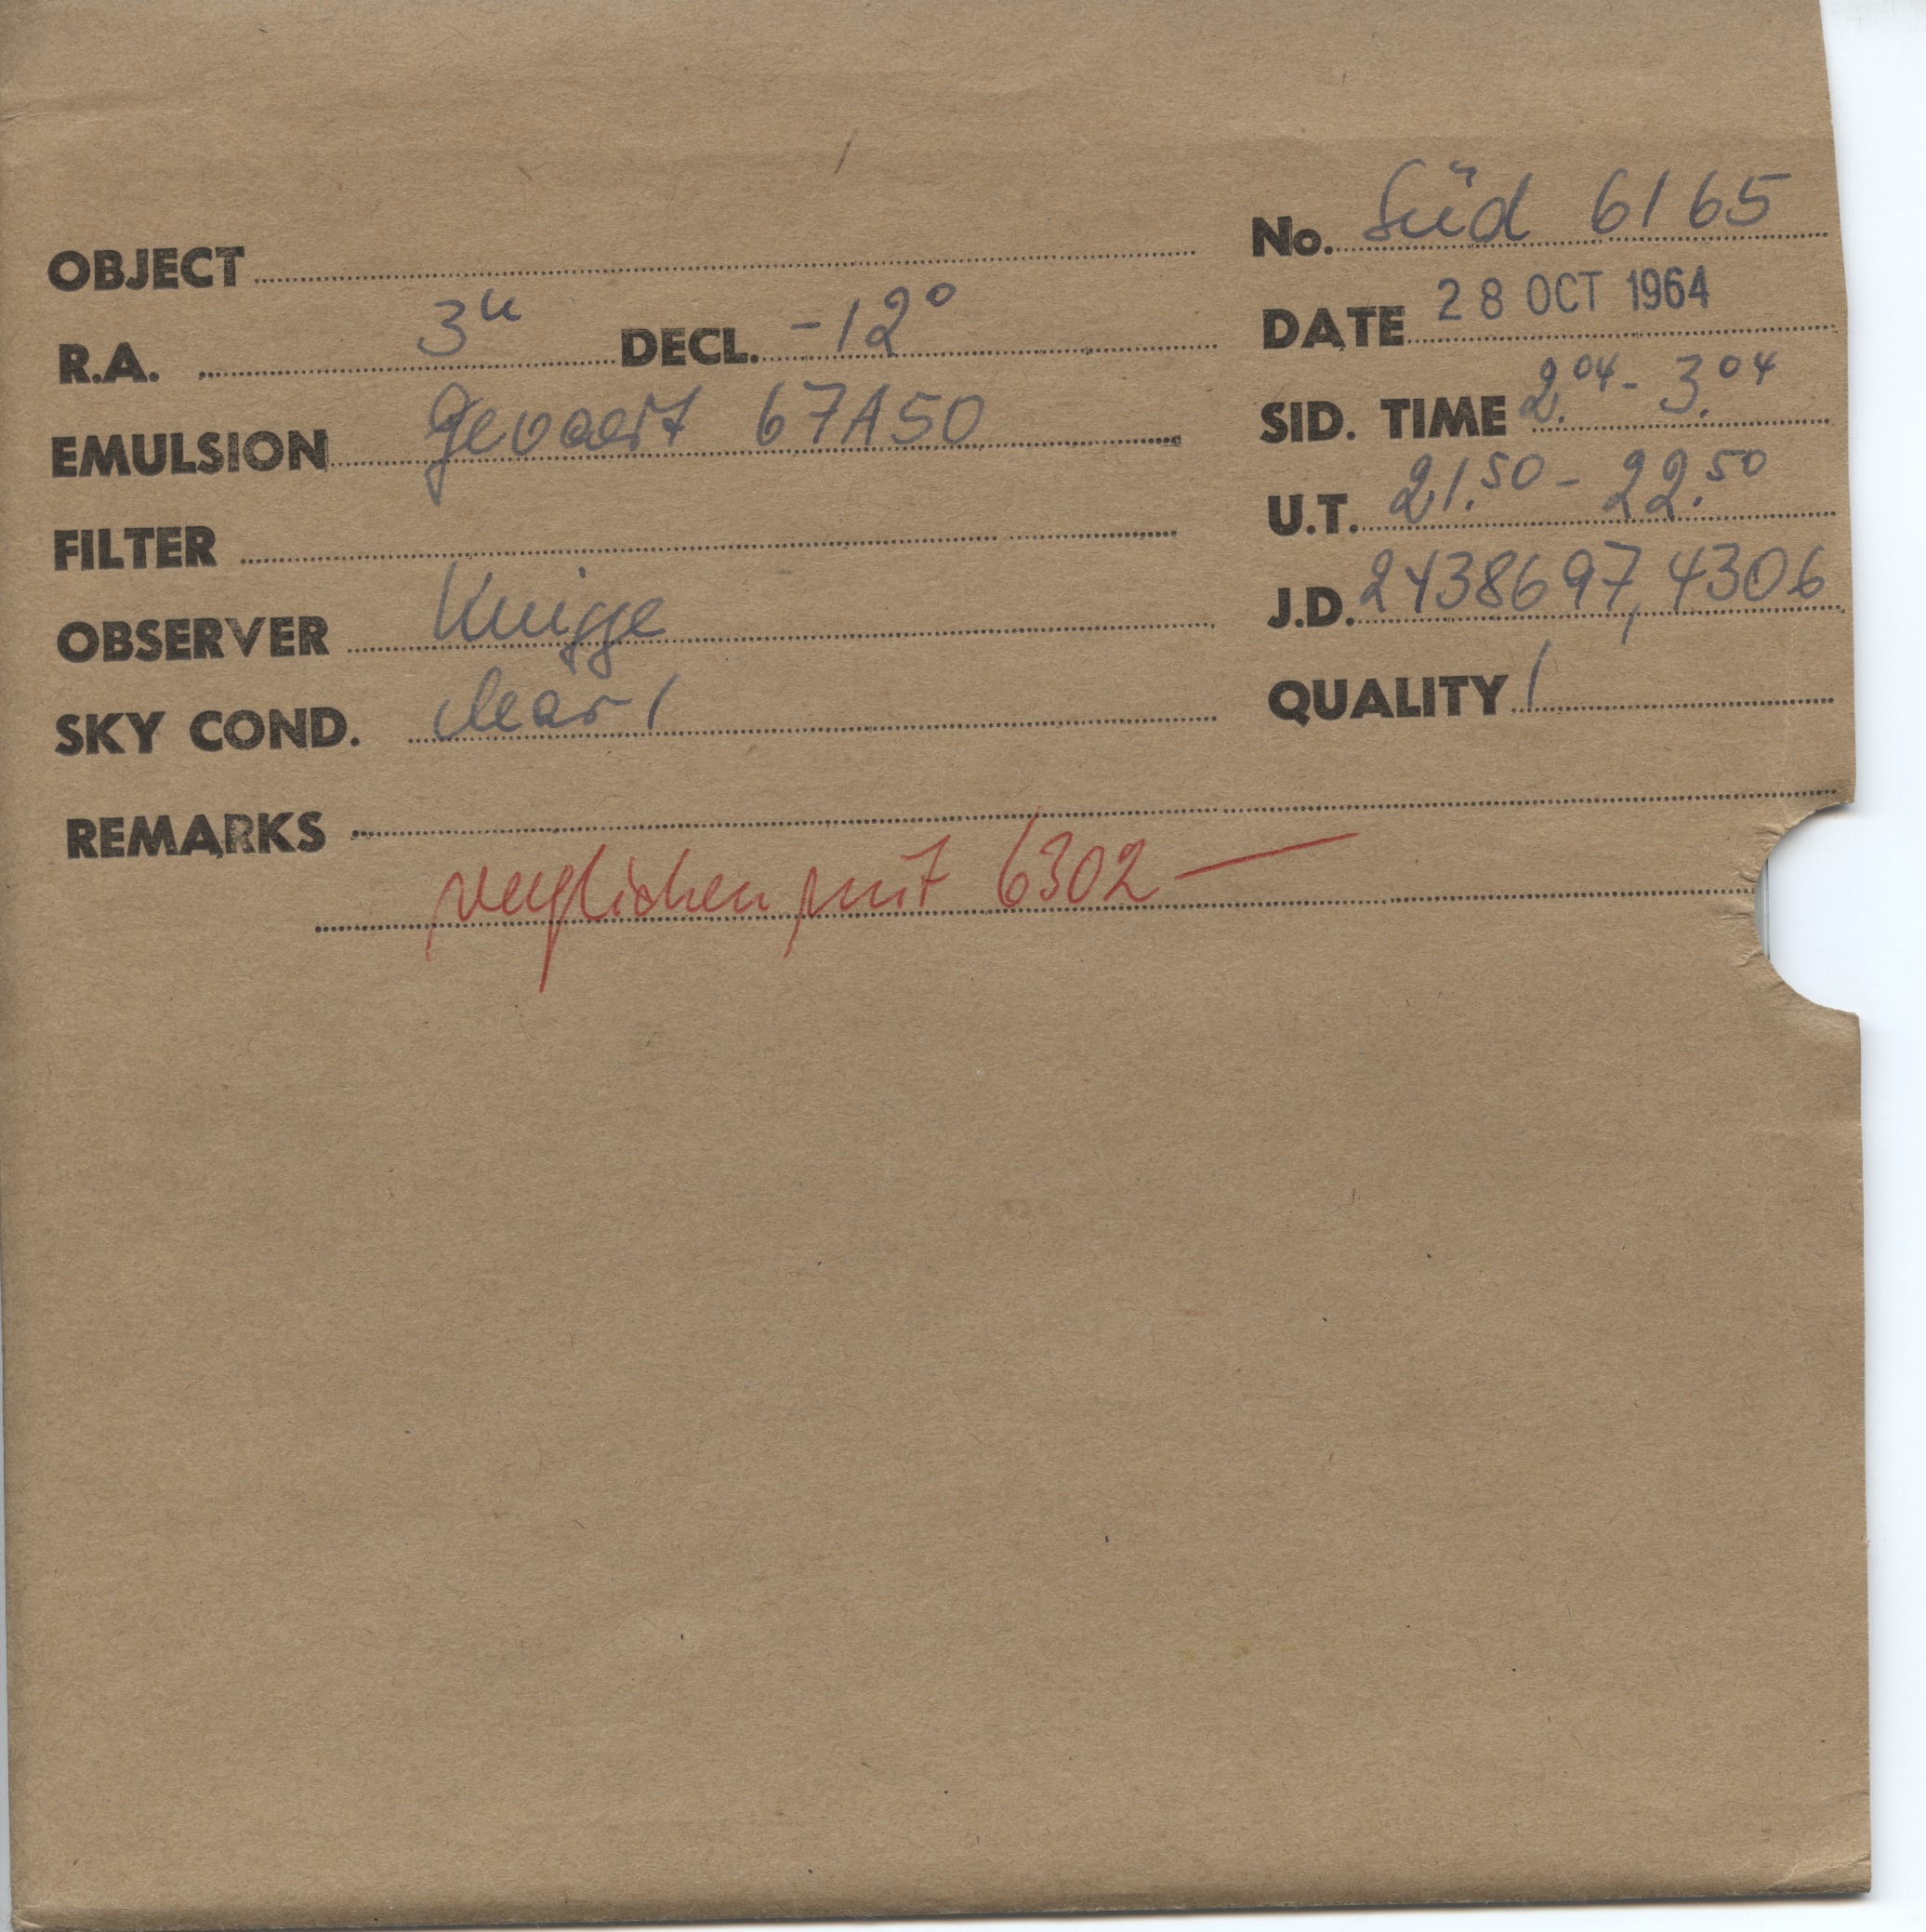 No. Süd 6165
OBJECT
DATE 28 OCT 1964
R.A. 3h DECL. -12°
SID. TIME 2.04 - 3.04
EMULSION Gevaert 67A50
U.T. 21.50 - 22.50
FILTER
J.D. 2438697,4306
OBSERVER Knigge
QUALITY 1
SKY COND. clear 1
REMARKS
verglichen mit 6302 —